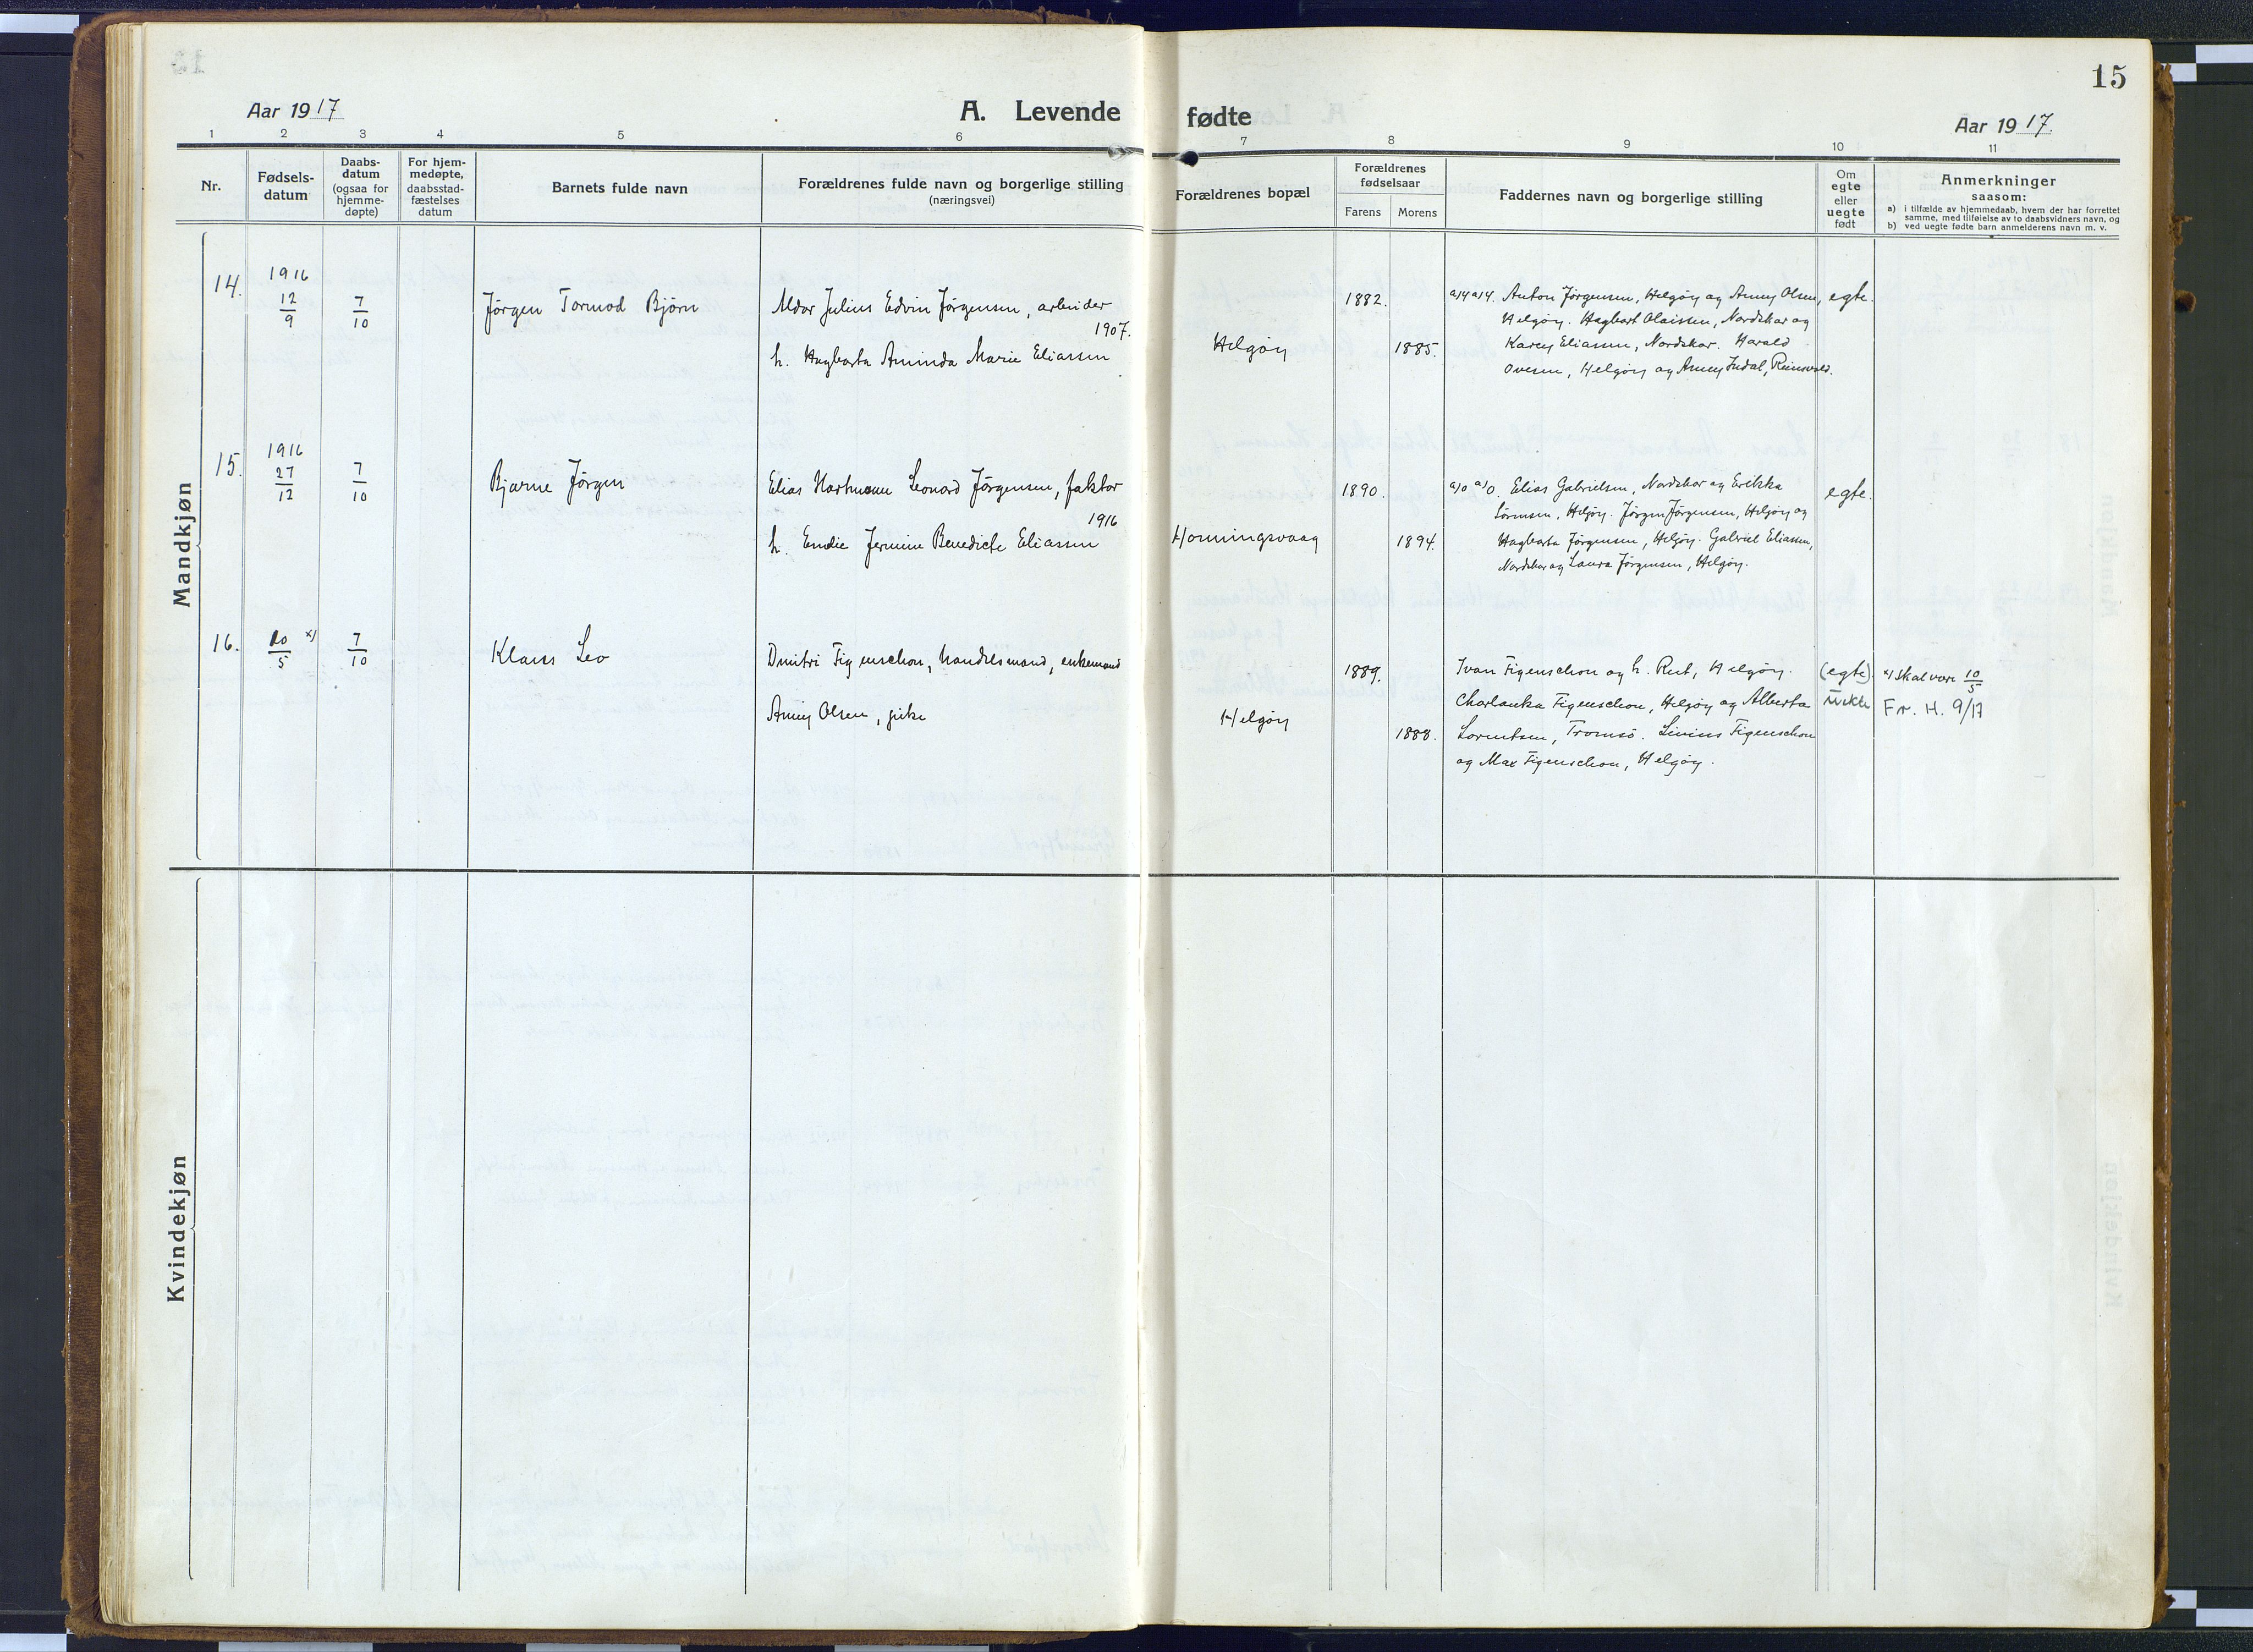 15
Aar 1917
A. Levende fødte
Aar 1917.
1 2 3 4 5 6 7 8 9 10 11
Nr.
Fødsels-
datum
Daabs-
datum
(ogsaa for
hjemme-
døpte)
For hjem-
medøpte,
daabsstad-
fæstelses
datum
Barnets fulde navn
Forældrenes fulde navn og borgerlige stilling
(næringsvei)
Forældrenes bopæl
Forældrenes
fødselsaar
Farens Morens
Faddernes navn og borgerlige stilling
Om
egte
eller
uegte
født
Anmerkninger
saasom:
a) i tilfælde av hjemmedaab, hvem der har forrettet
samme, med tilføielse av to daabsvidners navn, og
b) ved uegte fødte barn anmelderens navn m. v.
Mandkjøn
14.
1916
12/9
7/10
Jørgen Tormod Bjørn
Aldor Julius Edvin Jørgensen, arbeider
1907.
h. Hagbarta Aminda Marie Eliassen
Helgøy
1882.
1885.
Anton Jørgensen, Helgøy og Anny Olsen,
Helgøy. Hagbart Olaissen, Nordskar og
Karen Eliassen, Nordskar. Harald
Ovesen, Helgøy og Anny Indal, Reinsvold.
egte.
15.
1916
27/12
7/10
Bjarne Jörgen
Elias Hartmann Leonard Jørgensen, faktor
1916
h. Emelie Jermine Benedicte Eliassen
Honningsvaag
1890.
1894.
Elias Gabrielsen, Nordskar og Erikka
Sörensen, Helgöy. Jörgen Jörgensen, Helgöy og
Hagbarta Jørgensen, Helgöy. Gabriel Eliassen,
Nordskar og Laura Jörgensen, Helgöy.
egte.
16.
20/5 x)
7/10
Klaus Leo
Dmitri Figenschou, handelsmand, enkemand
Anny Olsen, pike
Helgöy
1889.
1888.
Ivan Figenschou og h. Rut, Helgöy.
Charlanka Figenschou, Helgöy og Alberta
Lorentsen, Tromsö. Livius Figenschou
og Max Figenschou, Helgöy.
(egte)
uekte
x) skal være 10/5
Fr. H. 9/17
Kvindekjøn